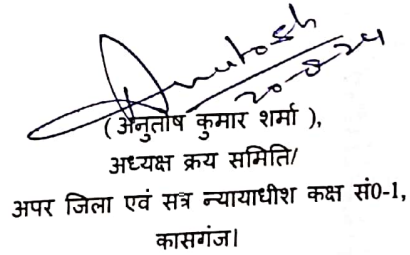 Anutosh
20-8-24
(अनुतोष कुमार शर्मा ),
अध्यक्ष क्रय समिति/
अपर जिला एवं सत्र न्यायाधीश कक्ष सं0-1,
कासगंज।